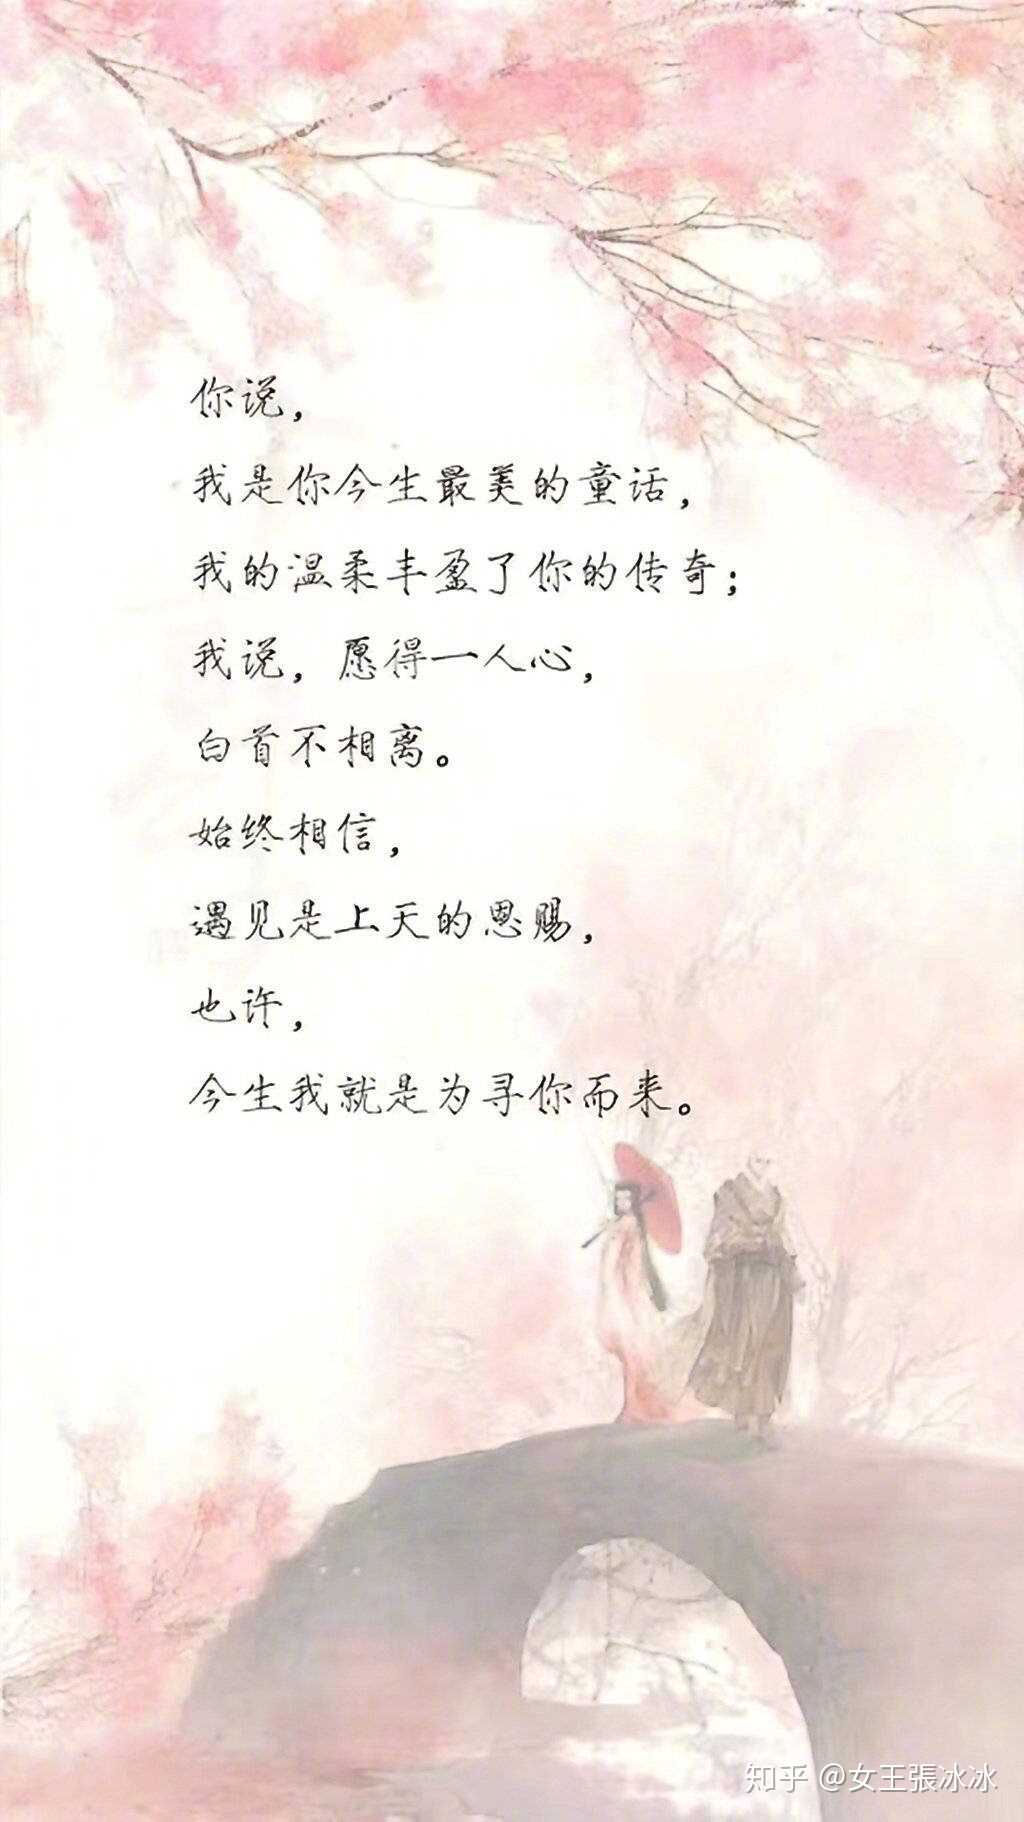 你说，
我是你今生最美的童话，
我的温柔丰盈了你的传奇；
我说，愿得一人心，
白首不相离。
始终相信，
遇见是上天的恩赐，
也许，
今生我就是为寻你而来。
知乎 @女王張冰冰